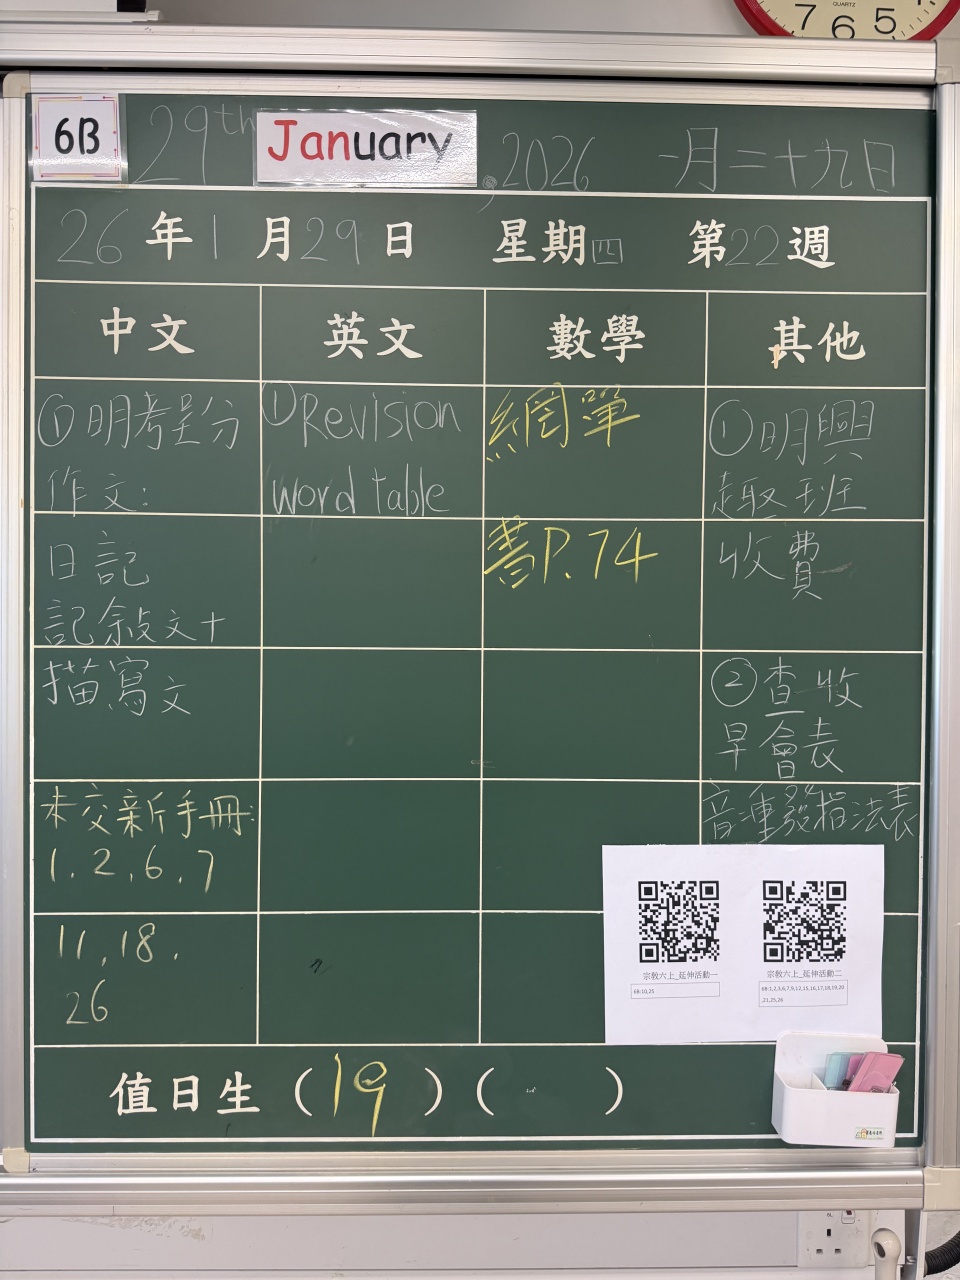 QUARTZ
7 6 5
6B 29th January, 2026 一月二十九日
26年1月29日 星期四 第22週
中文 英文 數學 其他
①明考呈分
作文:
日記
記敘文+
描寫文
未交新手冊:
1.2.6.7
11.18.
26
①Revision
word table
網單
書P.74
①明興
趣班
收費
②查收
早會表
宗教六上_延伸活動一
6B:10,25
宗教六上_延伸活動二
6B:1,2,3,6,7,9,12,15,16,17,18,19,20
,21,25,26
值日生(19)( )